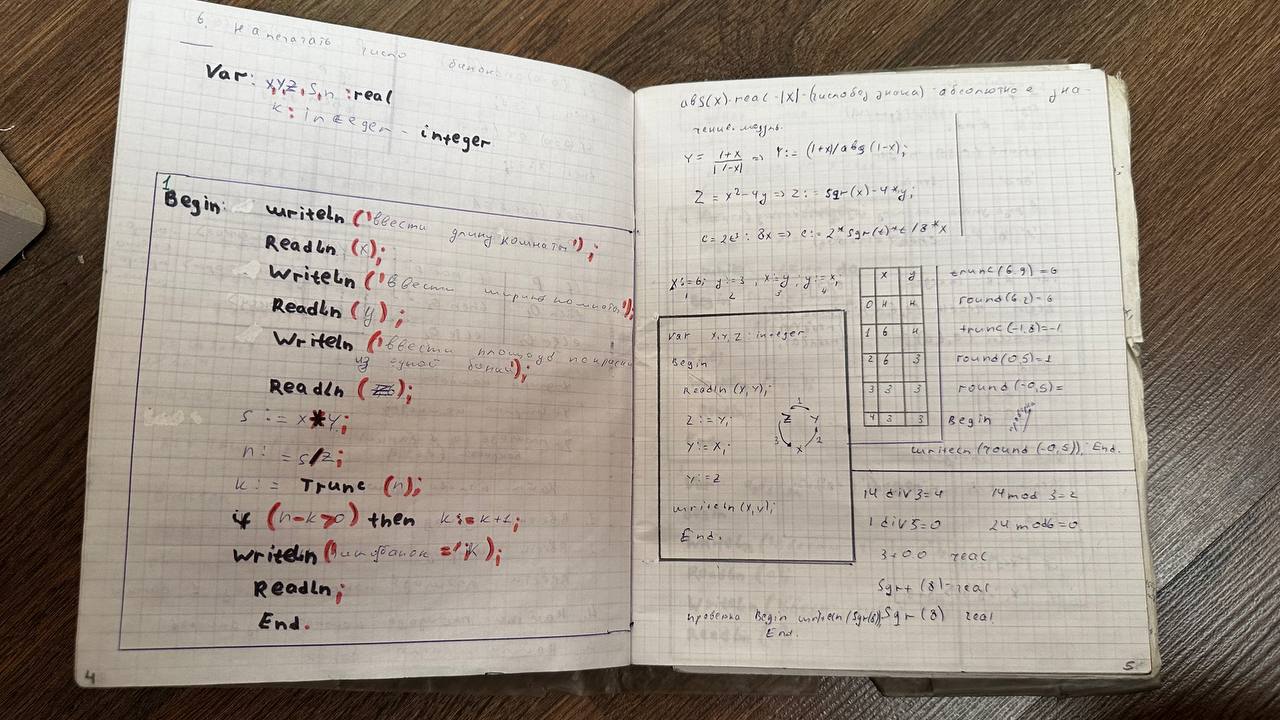 6. Напечатать число банок
Var: x,y,z, s,n :real
k: integer - integer
1
Begin: writeln ('ввести длину комнаты');
Readln (x);
Writeln ('ввести ширину комнаты');
Readln (y);
Writeln ('ввести площадь покраски
из одной банки');
Readln ( );
s := x*y;
n: = s/z;
k: = Trunc (n);
if (n-k>0) then k:=k+1;
Writeln (' банок =', k);
Readln;
End.
4
abs(x)-real -|x|- (числовоз знака) абсолютное зна-
чение. модуль.
Y = 1+x / |1-x| => Y:= (1+x)/abs(1-x);
Z = x²-4y => Z:= Sgr(x)-4*y;
c = 2t³ : 8x => c:= 2*Sgr(t)*t/8*x
x:=6; y:=3, x:=y, y:=x,
1 2 3 4
Var x,y,z integer
Begin
Readln (x,y);
Z:= Y;
Y:= X;
Y:= Z
writeln (x,y);
End.
1
Z Y
3 2
X
x y
0 4 4
1 6 4
2 6 3
3 3 3
4 3 3
trunc(6.9) = 6
round(6.2) = 6
trunc(-1,8)=-1
round(0,5)=1
round(-0,5)=
Begin проверка
writeln (round (-0,5)); End.
14 div 3=4 14 mod 3=2
1 div 5=0 24 mod 6=0
3+0.0 real
Sgrt (8)-real
проверка Begin writeln (Sgr(8)) Sgr (8) real
End.
5